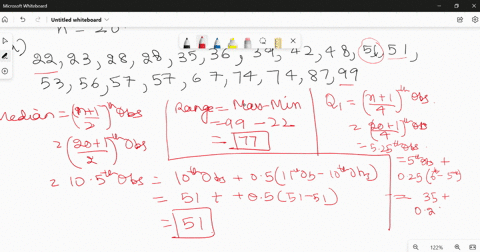 Microsoft Whiteboard
Untitled whiteboard
n = 20
22, 23, 28, 28, 35, 36, 39, 42, 48, 51, 51,
53, 56, 57, 57, 67, 74, 74, 87, 99
Median = (n+1/2)^th Obs
= (20+1/2)^th Obs
= 10.5^th Obs = 10^th Obs + 0.5(11^th Obs - 10^th Obs)
= 51 + 0.5(51-51)
= 51
Range = Max-Min
= 99 - 22
= 77
Q1 = (n+1/4)^th Obs.
= (20+1/4)^th Obs
= 5.25^th Obs
= 5^th Obs +
0.25(
= 35 +
122%